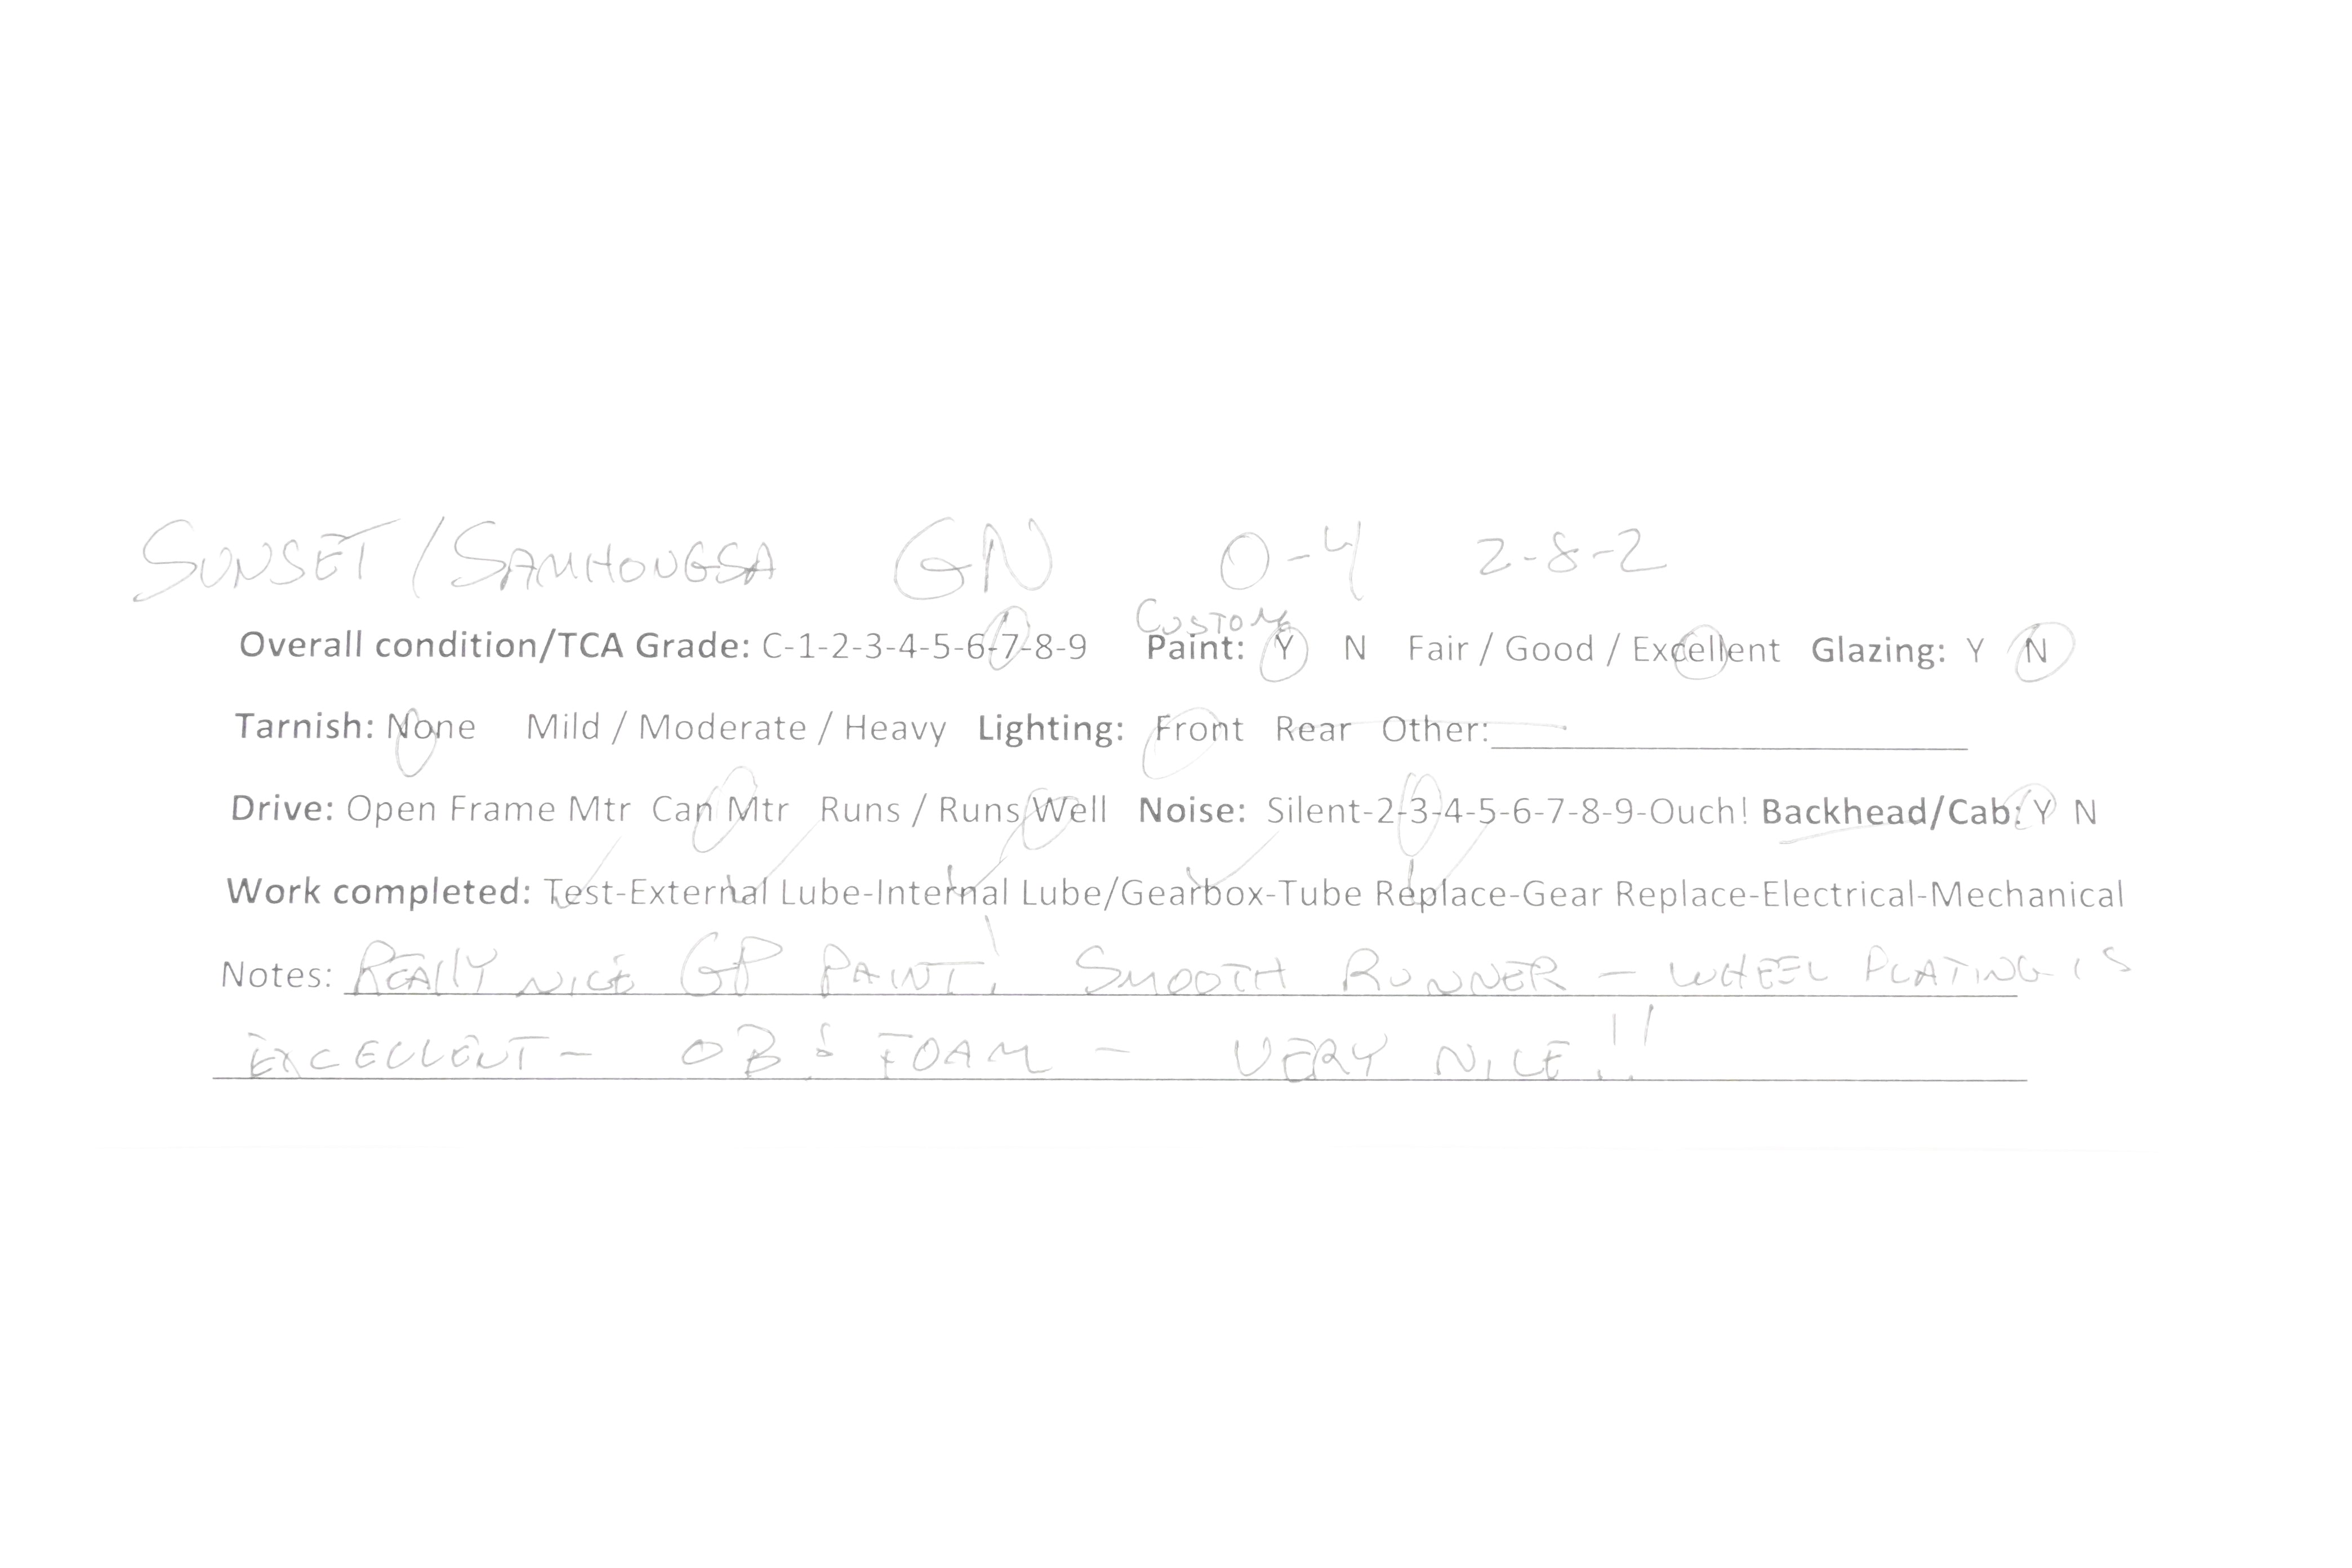 SUNSET / SAMHONGSA GN O-4 2-8-2
CUSTOM
Overall condition/TCA Grade: C-1-2-3-4-5-6-7-8-9 Paint: Y N Fair / Good / Excellent Glazing: Y N
Tarnish: None Mild / Moderate / Heavy Lighting: Front Rear Other:
Drive: Open Frame Mtr Can Mtr Runs / Runs Well Noise: Silent-2-3-4-5-6-7-8-9-Ouch! Backhead/Cab: Y N
Work completed: Test-External Lube-Internal Lube/Gearbox-Tube Replace-Gear Replace-Electrical-Mechanical
Notes: REALLY NICE GP PAINT! SMOOTH RUNNER - WHEEL PLATING IS
EXCELLENT - OB & FOAM - VERY NICE!!